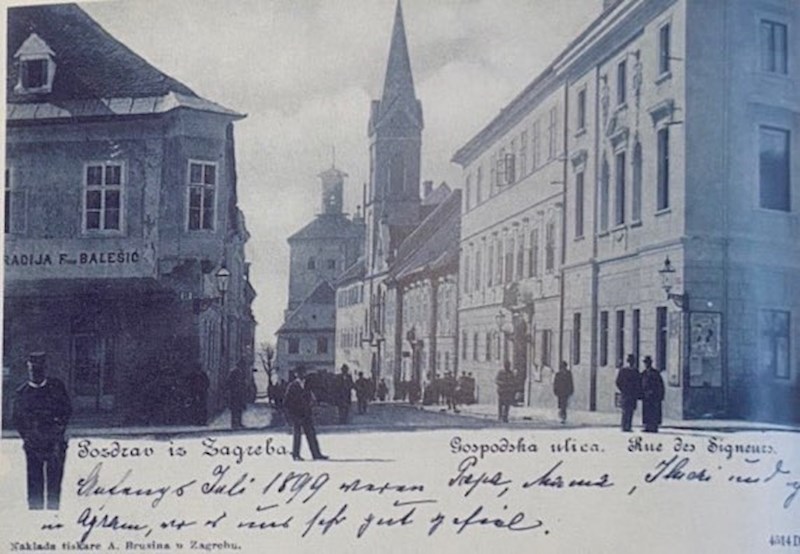 RADIJA F BALEŠIĆ
Pozdrav iz Zagreba.
Gospodska ulica. Rue des Signeurs.
Anfangs Juli 1899 waren Papa, Mama, und
in Agram, wo es uns sehr gut gefiel.
Naklada tiskare A. Brusina u Zagrebu.
4514